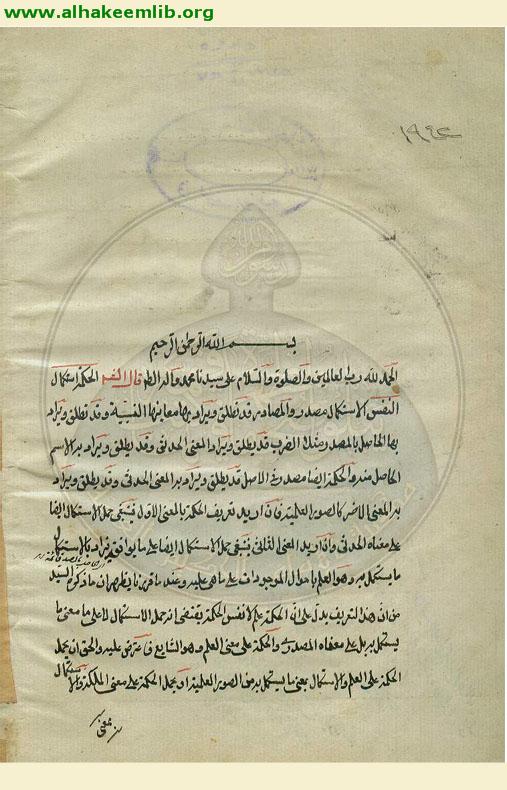 www.alhakeemlib.org
١٩٤٤
بسم الله الرحمن الرحيم
الحمد لله رب العالمين والصلوة والسلام على سيدنا محمد واله الطهر قال الحكمة استكمال
النفس الاستكمال مصدر والمصادر قد تطلق ويراد بها معانيها النسبية وقد تطلق ويراد
بها الحاصل بالمصدر مثلا الضرب قد يطلق ويراد المعنى الحدثى وقد يطلق ويراد به الاسم
الحاصل منه والحكمة ايضا مصدر فى الاصل قد يطلق ويراد به المعنى الحدثى وقد يطلق ويراد
به المعنى الاخر كالصور العلمية فان اريد تعريف الحكمة بالمعنى الاول فينبغى حمل الاستكمال ايضا
على معناه الحدثى وان اريد المعنى الثانى فينبغى حمل الاستكمال ايضا على ما يوافقه فيراد بالاستكمال
ما يستكمل به وهو العلم باحوال الموجودات على ما هى عليه وعند ما قررنا يظهر ان ما ذكره السيد
من ان هذا التعريف يدل على ان الحكمة علم لا نفس الحكمة يقتضى ان حمل الاستكمال لا على معنى ما
يستكمل به بل على معناه المصدرى والحكمة على معنى العلم وهو الشايع فى عليه والحق ان يحمل
الحكمة على العلم والاستكمال بمعنى ما يستكمل به من الصور العلمية او يحمل الحكمة على معنى الملكة والاستكمال
بمعنى